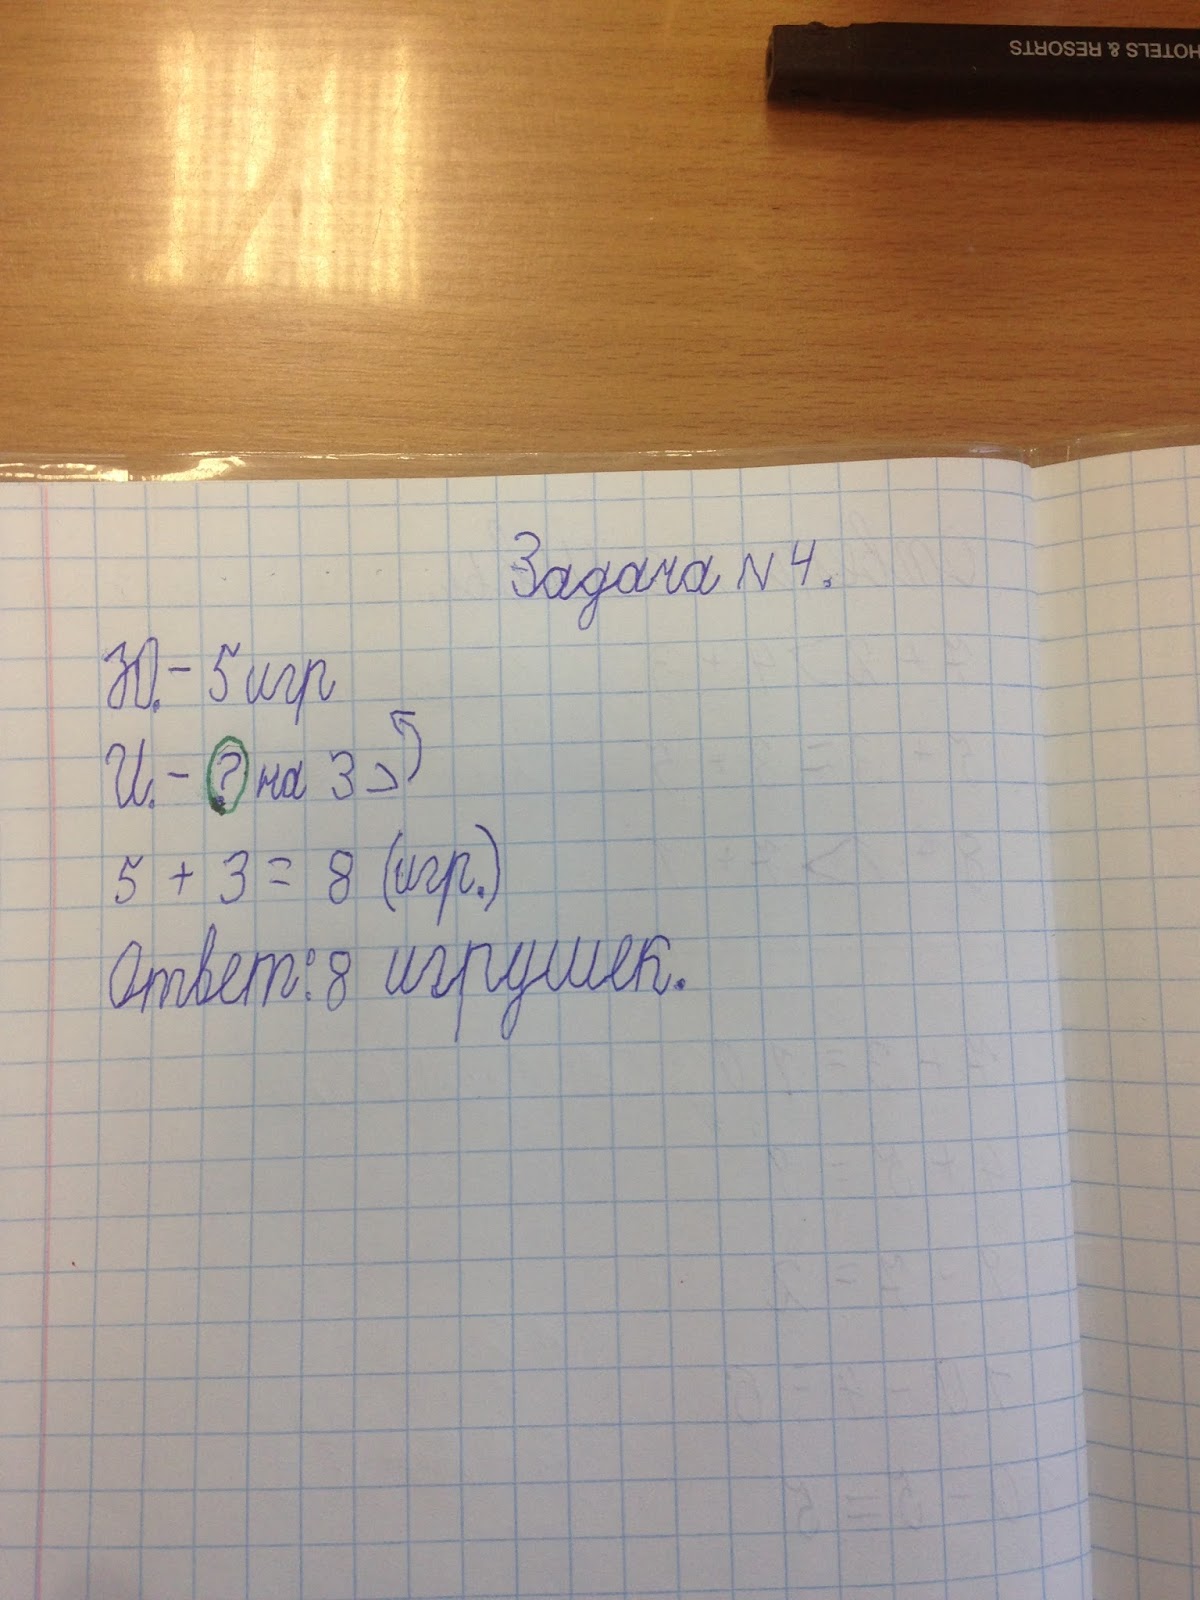 HOTELS & RESORTS
Задача N 4.
Ю. - 5 игр
И. - ? на 3 >
5 + 3 = 8 (игр.)
Ответ: 8 игрушек.